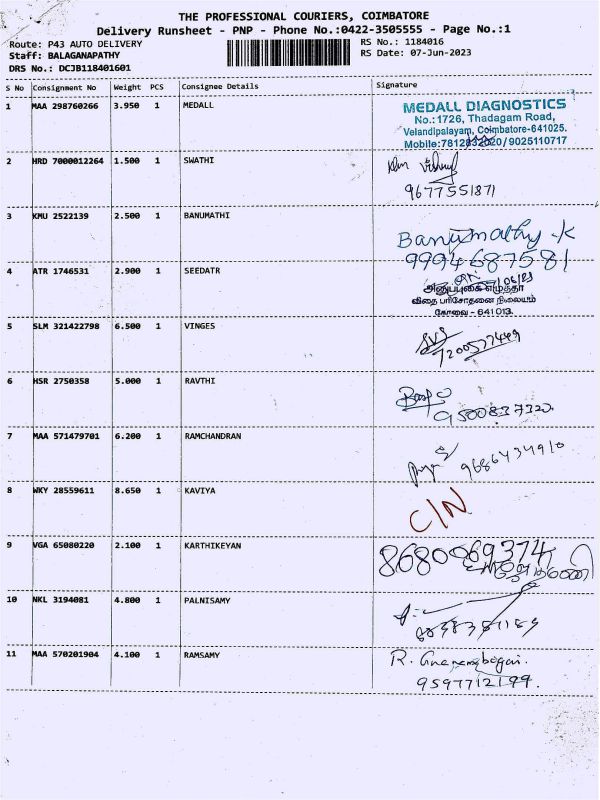 THE PROFESSIONAL COURIERS, COIMBATORE
Delivery Runsheet - PNP - Phone No.:0422-3505555 - Page No.:1
Route: P43 AUTO DELIVERY
RS No.: 1184016
Staff: BALAGANAPATHY
RS Date: 07-Jun-2023
DRS No.: DCJB118401601
S No Consignment No Weight PCS Consignee Details Signature
1 MAA 298760266 3.950 1 MEDALL
MEDALL DIAGNOSTICS
No.:1726, Thadagam Road,
Velandipalayam, Coimbatore-641025.
Mobile:7812832020/9025110717
2 HRD 7000012264 1.500 1 SWATHI
9677551871
3 KMU 2522139 2.500 1 BANUMATHI
Banumathy.K
9994687581
4 ATR 1746531 2.900 1 SEEDATR
அனுப்புகை எழுத்தர்
விதை பரிசோதனை நிலையம்
கோவை - 641 013.
5 SLM 321422798 6.500 1 VINGES
7200577449
6 HSR 2750358 5.000 1 RAVTHI
9500837320.
7 MAA 571479701 6.200 1 RAMCHANDRAN
9686434910
8 WKY 28559611 8.650 1 KAVIYA
C/N
9 VGA 65080220 2.100 1 KARTHIKEYAN
8680069374
10 NKL 3194081 4.800 1 PALNISAMY
11 MAA 570201904 4.100 1 RAMSAMY
R.
9597712199.